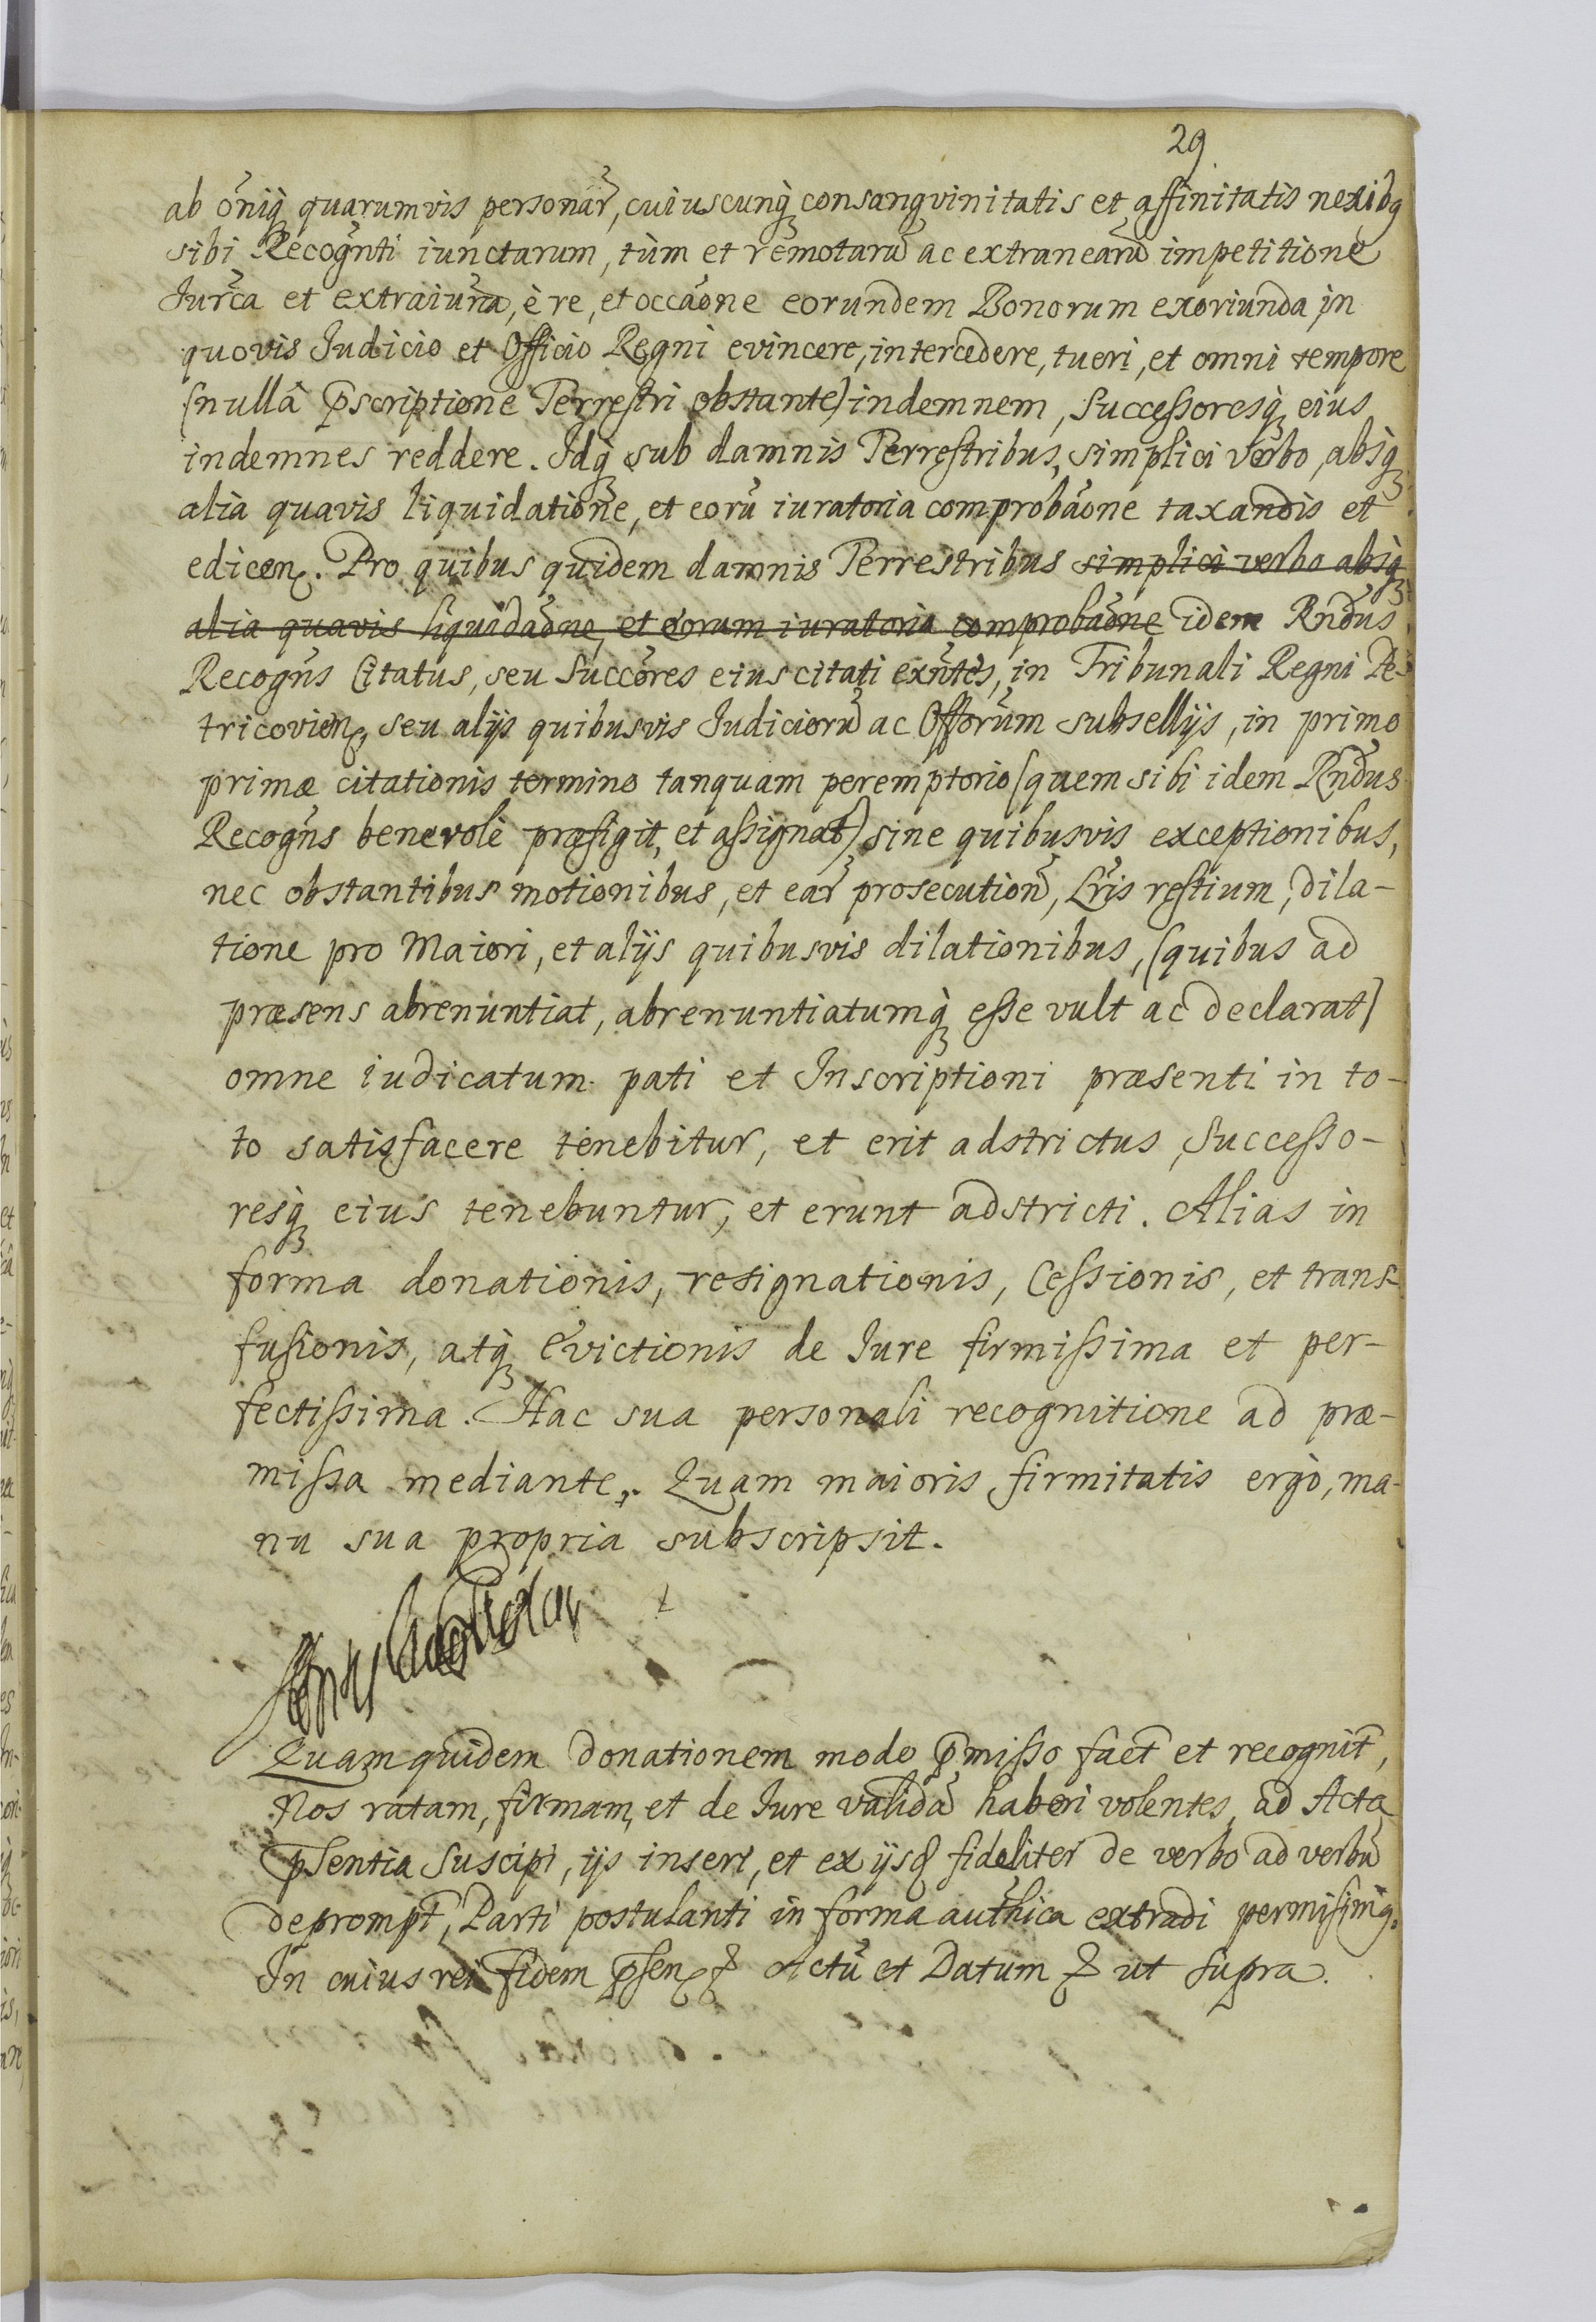 29.
ab õniq́ꝫ quarumvis personar̃, cuiuscunq́ꝫ consangvinitatis et affinitatis nexibꝫ
sibi Recogñti iunctarum, tùm et remotarũ ac extranearũ impetitione
Iurẽa et extraiurña, è re, et occãone eorundem Bonorum exoriunda in
quovis Iudicio et Officio Regni evincere, intercedere, tueri, et omni tempore
(nullâ p̃scriptione Terrestri obstante) indemnem, Successoresq́ꝫ eius
indemnes reddere. Idq́ꝫ sub damnis Terrestribus, simplici verbo, absq́ꝫ
alia quavis liquidatione, et eorũ iuratoria comprobãone taxandis et
edicenꝭ. Pro quibus quidem damnis Terrestribus simplici verbo absq́ꝫ
alia quavis liquidãone, et eorum iuratoria comprobãone idem Rñdus
Recogñs Citatus, seu Succõres eius citati exñtes, in Tribunali Regni Pe-
tricovienꝭ, seu alijs quibusvis Iudiciorũ ac Offõrum subsellijs, in primo
primæ citationis termino tanquam peremptorio (quem sibi idem Rñdus
Recogñs benevolè præfigit, et assignat) sine quibusvis exceptionibus,
nec obstantibus motionibus, et ear̃ prosecutionẽ, Lr̃is restium, dila-
tione pro Maiori, et alijs quibusvis dilationibus, (quibus ad
præsens abrenuntiat, abrenuntiatumq́ꝫ esse vult ac declarat)
omne iudicatum pati et Inscriptioni præsenti in to-
to satisfacere tenebitur, et erit adstrictus, Successo-
resq́ꝫ eius tenebuntur, et erunt adstricti. Alias in
forma donationis, resignationis, Cessionis, et trans-
fusionis, atq́ꝫ evictionis de Iure firmissima et per-
fectissima. Hac sua personali recognitione ad præ-
missa mediante. Quam maioris firmitatis ergò, ma-
nu sua propria subscripsit.
Quam quidem donationem modo p̃misso fact̃ et recognit̃,
Nos ratam, firmam, et de Iure validã haberi volentes, ad Acta
p̃sentia suscipi, ijs inseri, et ex ijsđ fideliter de verbo ad verbũ
deprompt̃, Parti postulanti in forma auth̃ica extradi permisimꝰ.
In cuius rei fidem p̃senꝭ ꝛ Actũ et Datum ꝛ ut supra.